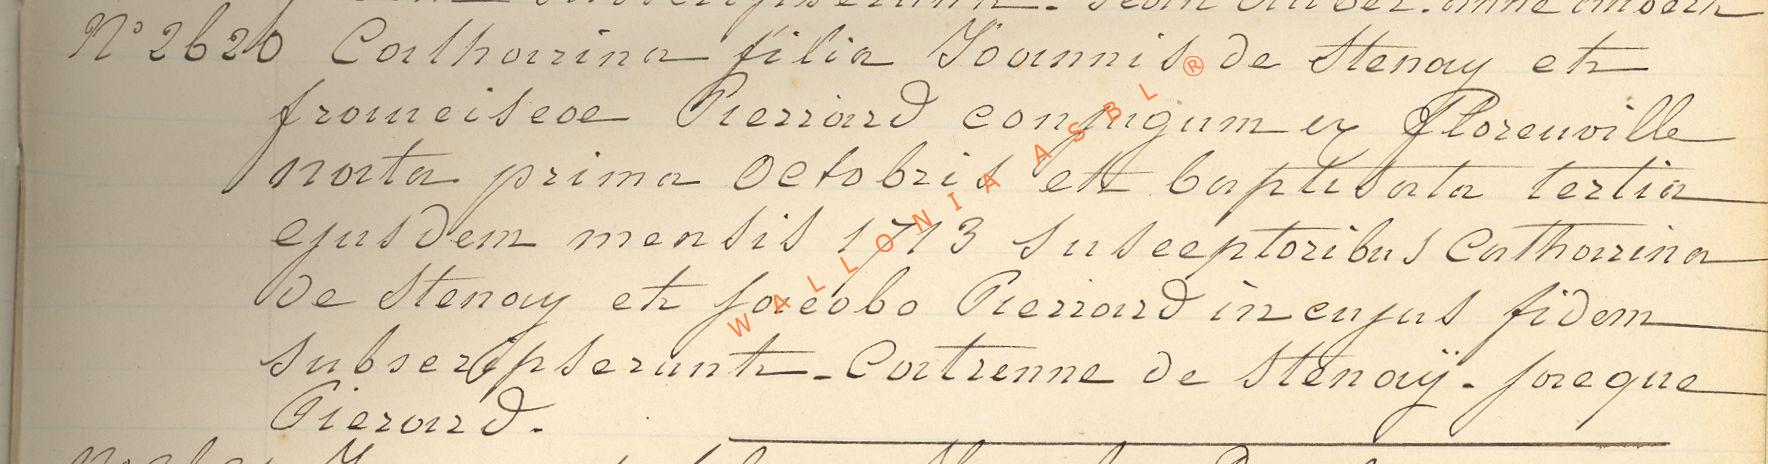 subscripserunt. Jean Auber. anne Auber
N° 2620 Catharina filia Joannis de Stenay et
franciscae Pierrard conjugum ex Florenville
nata prima Octobris et baptisata tertia
ejusdem mensis 1713 susceptoribus Catharina
de Stenay et Jacobo Pierrard in cujus fidem
subscripserunt - Catrenne de Stenaÿ - Jacque
Pierard.
WALLONIA ASBL ®